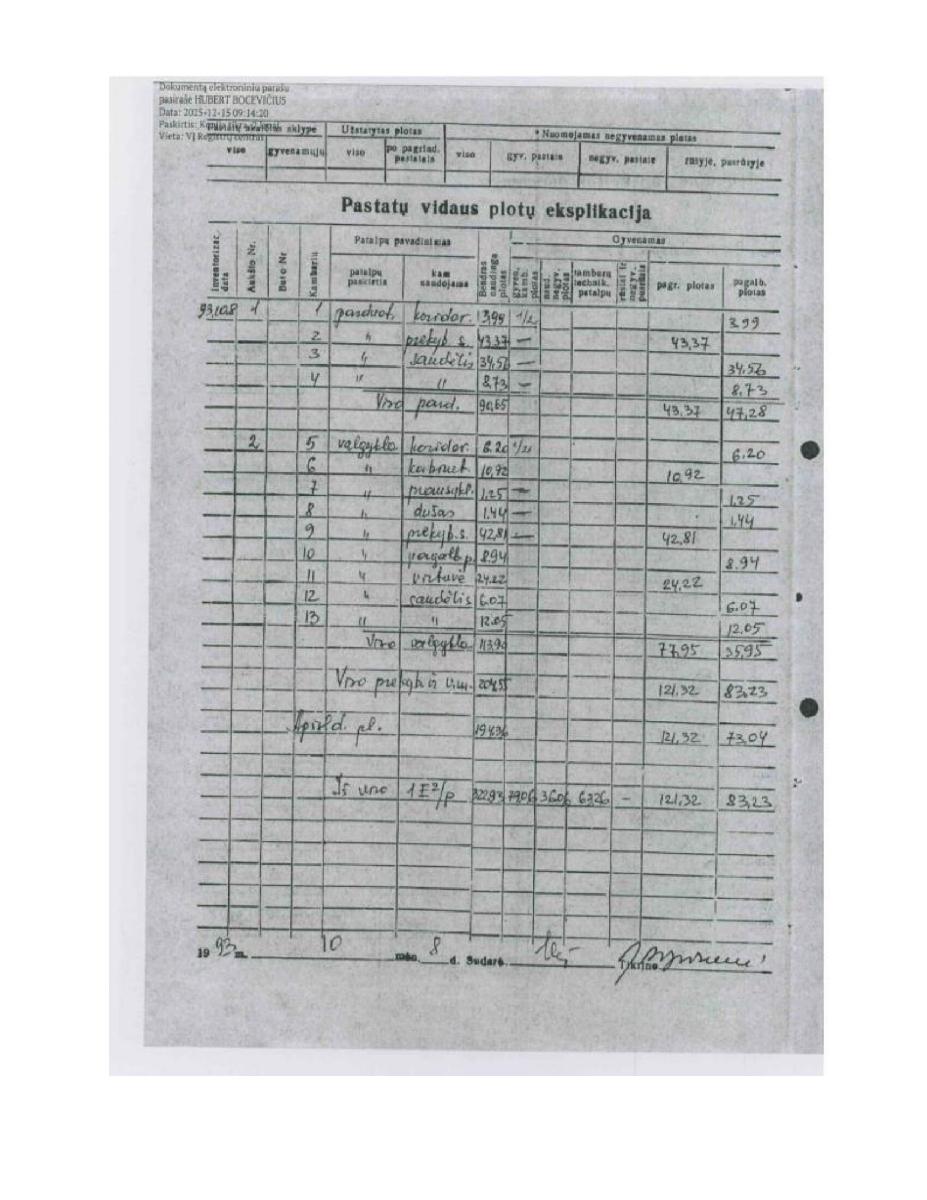 Dokumentą elektroniniu parašu
pasirašė HUBERT BOCEVIČIUS
Data: 2025-12-15 09:14:20
Paskirtis:
Vieta: VĮ Registrų centras
sklype Užstatytas plotas * Nuomojamas negyvenamas plotas
viso gyvenamųjų viso po pagrind. pastatais viso gyv. pastate negyv. pastate rūsyje, pusrūsyje
Pastatų vidaus plotų eksplikacija
Inventorizac. data Aukšto Nr. Buto Nr Kambarių Patalpų pavadinimas Bendras naudinga plotas Gyvenamas
patalpų paskirtis kam naudojama gyven. kamb. plotas negyv. plotas tambūrų technik. patalpų rūsiai ir negyv. pagr. plotas pagalb. plotas
93.10.8 1 1 koridor. 13,99 1/2 3.99
2 " prekyb. s. 43.37 — 43,37
3 " sandėlis 34,56 — 34.56
4 " " 8,73 — 8.73
Viso pard. 90,65 43.37 47,28
2 5 valgykla koridor. 6.20 6.20
6 " kabinet. 10,92 10,92
7 " prausykl. 1.25 — 1.25
8 " dušas 1.44 — 1.44
9 " prekyb.s. 42,81 — 42,81
10 " pagalb.p. 8.94 8.94
11 " virtuvė 24.22 24,22
12 " sandėlis 6.07 6.07
13 " " 12.05 12.05
Viso valgykla 113,90 77,95 35,95
Viso 204,55 121,32 83,23
Apšild. pl. 194,36 121,32 73,04
Iš viso 1E2/p 322,93 79,06 36,06 6326 - 121,32 83,23
19 93 m. 10 mėn. 8 d. Sudarė Tikrino